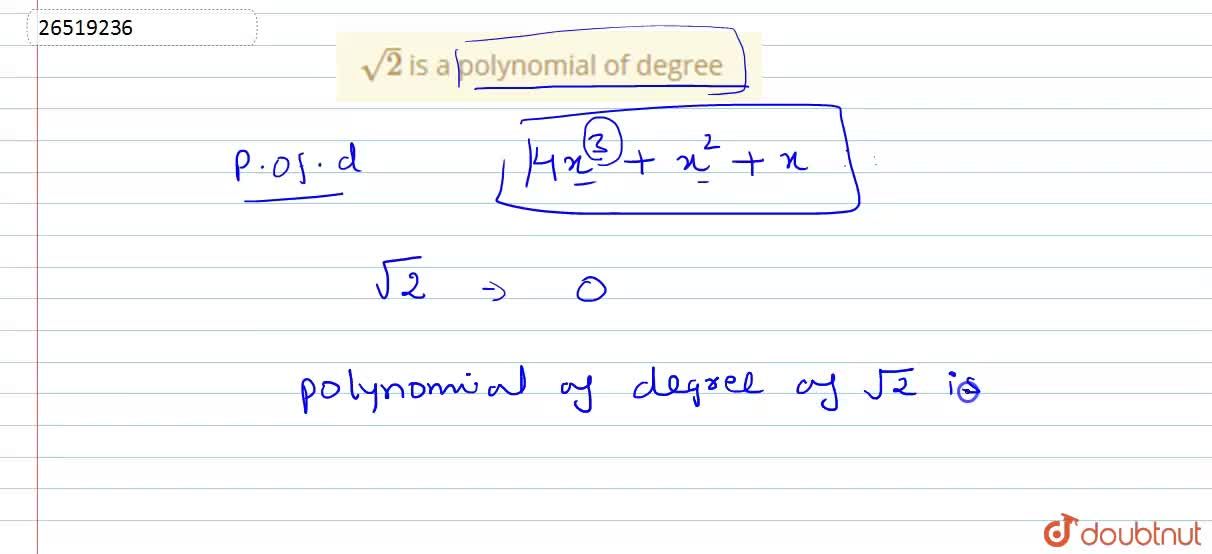 26519236
√2 is a polynomial of degree
P.of.d 4x³ + x² + x
√2 → 0
polynomial of degree of √2 is
doubtnut